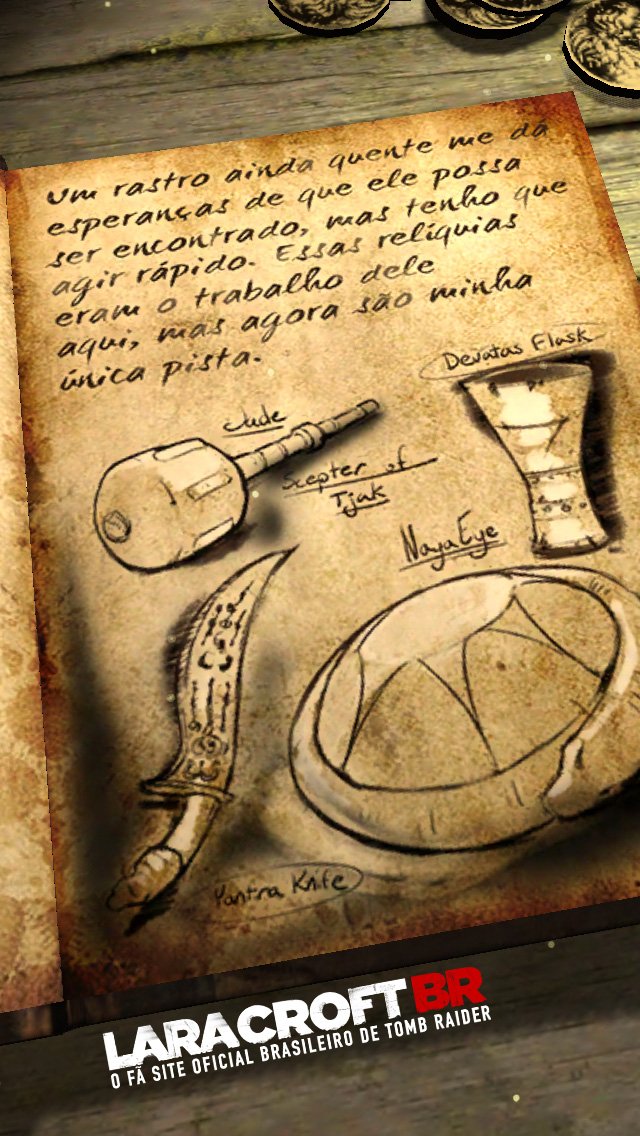 Um rastro ainda quente me dá
esperanças de que ele possa
ser encontrado, mas tenho que
agir rápido. Essas relíquias
eram o trabalho dele
aqui, mas agora são minha
única pista.
Devatas Flask
Jade
Scepter of
Tjak
Naga Eye
Yantra Knife
LARA CROFT BR
O FÃ SITE OFICIAL BRASILEIRO DE TOMB RAIDER